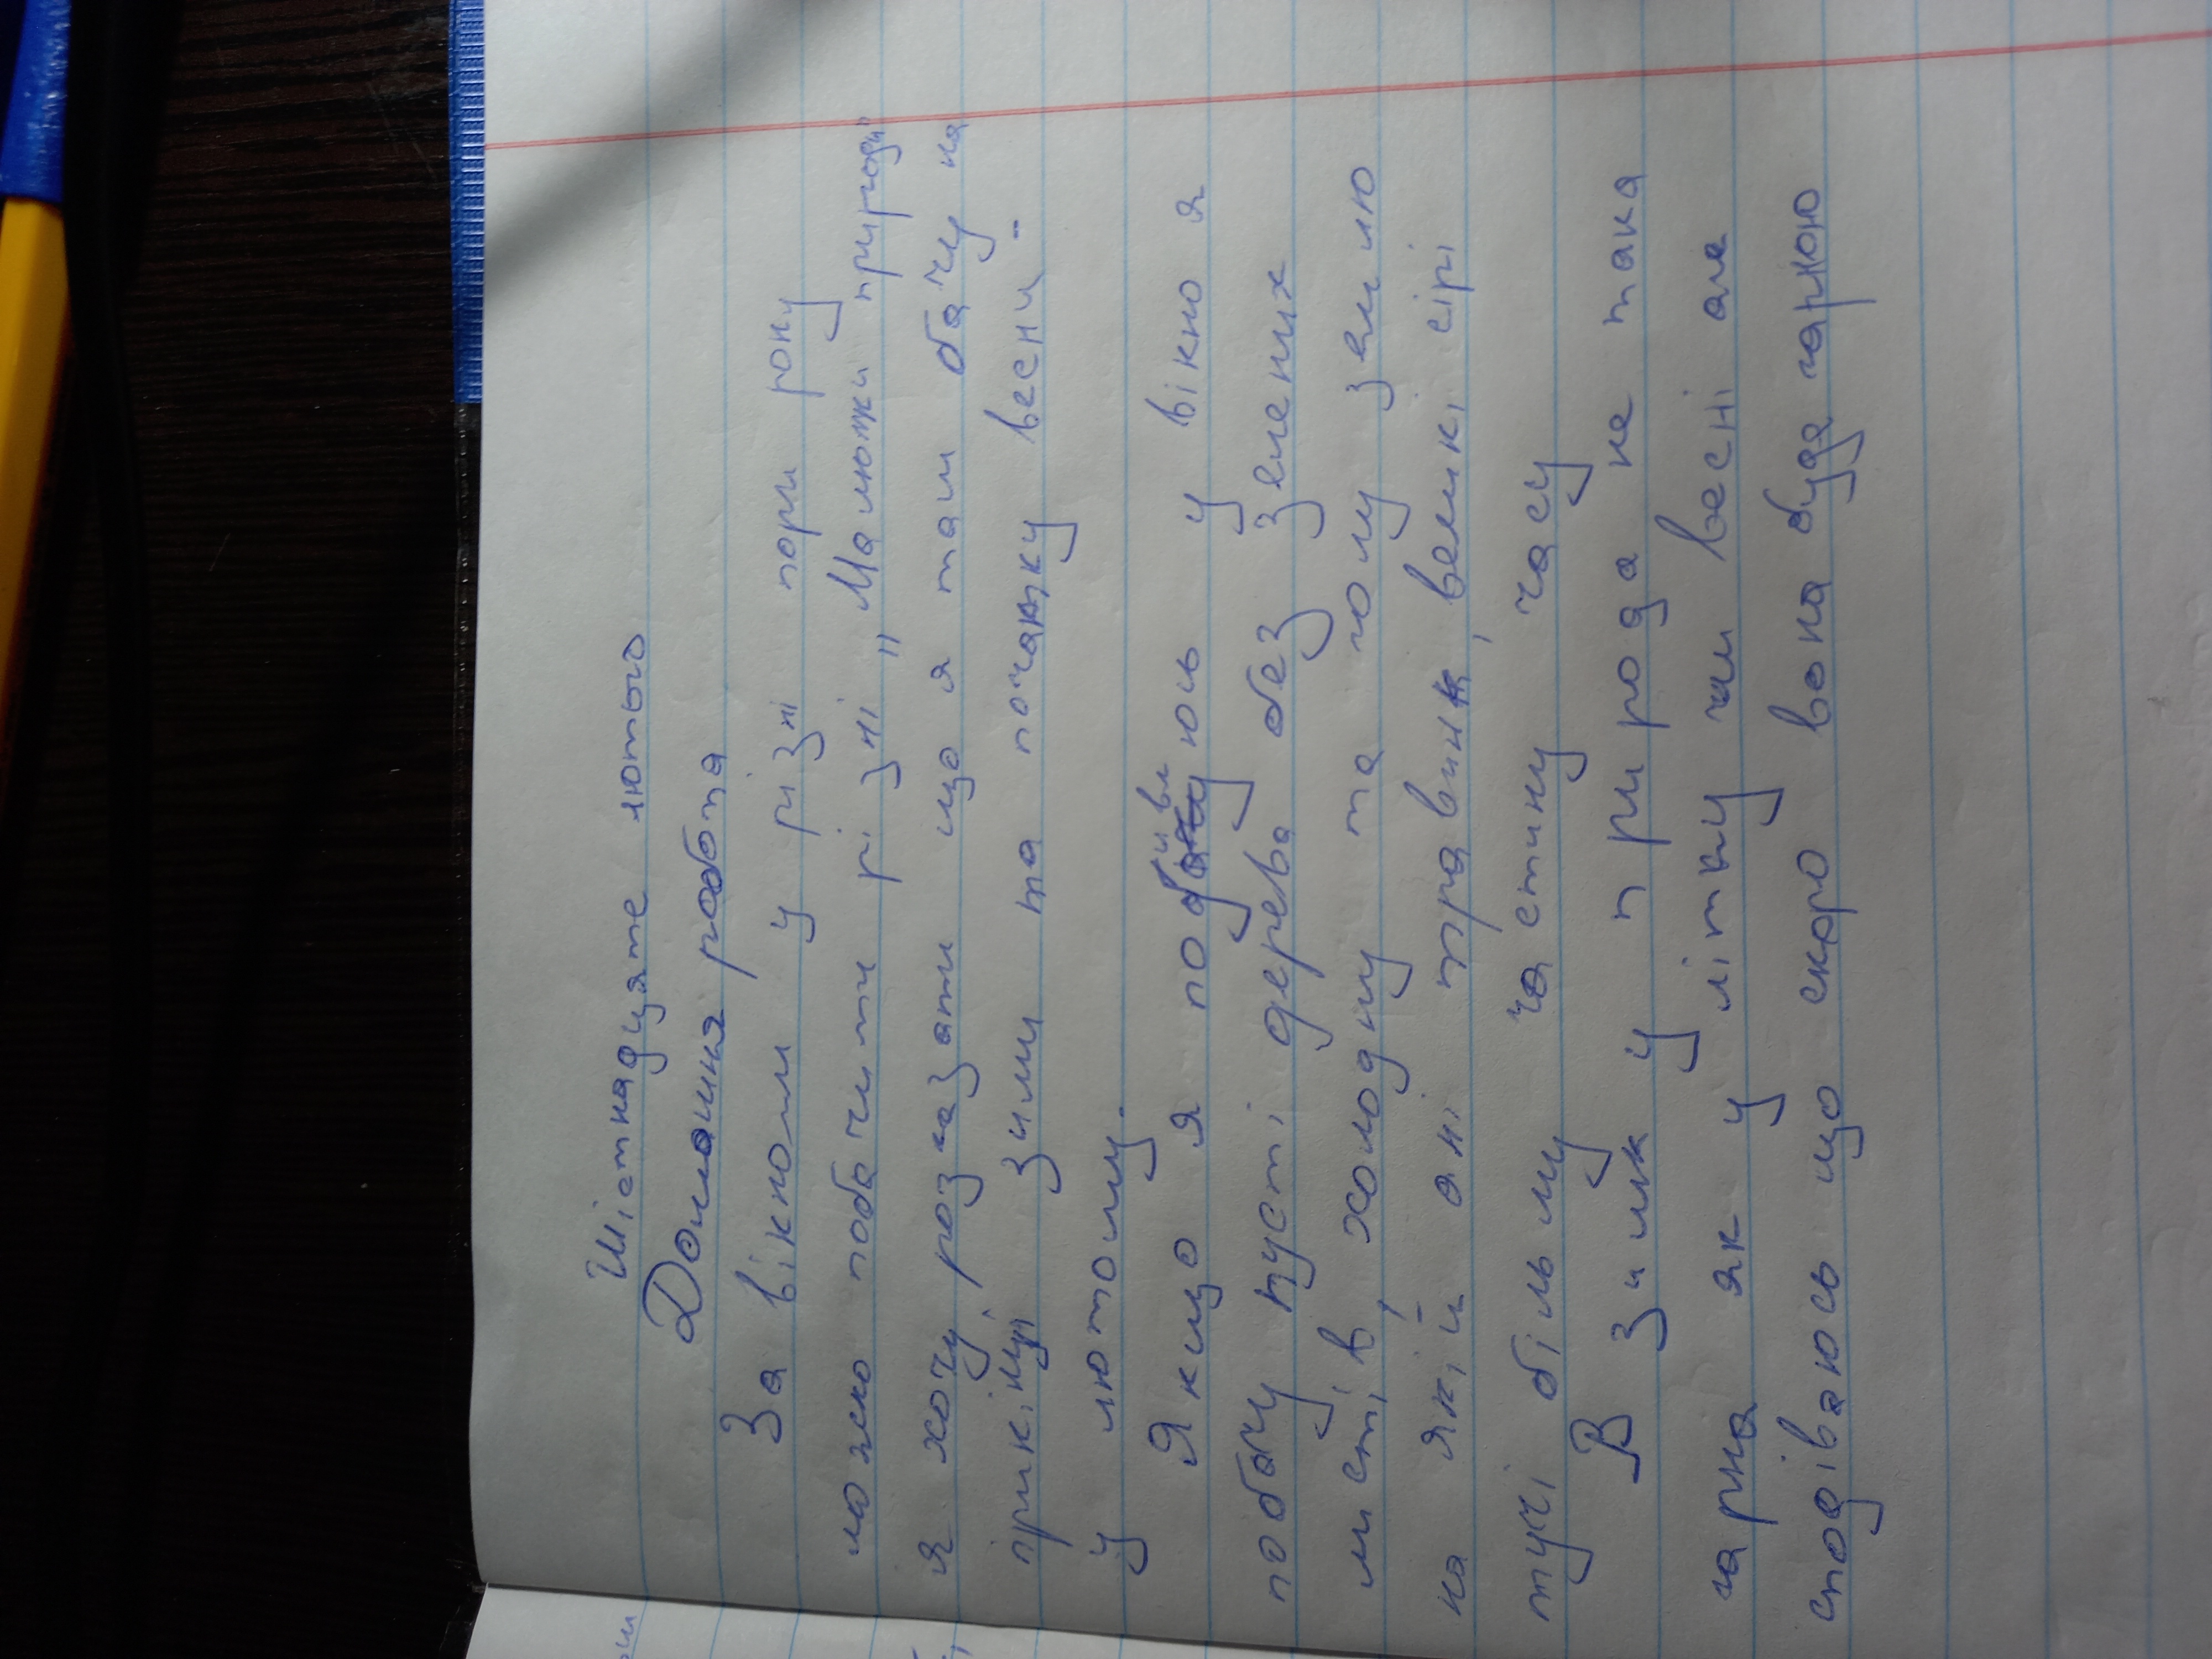 Шістнадцяте лютого
Домашня робота
За вікном у різні пори року
можно побачити різні „Малюнки природи"
я хочу розказати що я там бачу на
прикінці зими та початку весни -
у лютому.
Якщо я подивлюсь у вікно я
побачу пусті дерева без зелених
листів, холодну та голу землю
на якій ані травинк, великі сірі
тучі більшу частину часу
В зимку природа не така
гарна як у літку чи весні але
сподіваюсь що скоро вона буде гарною